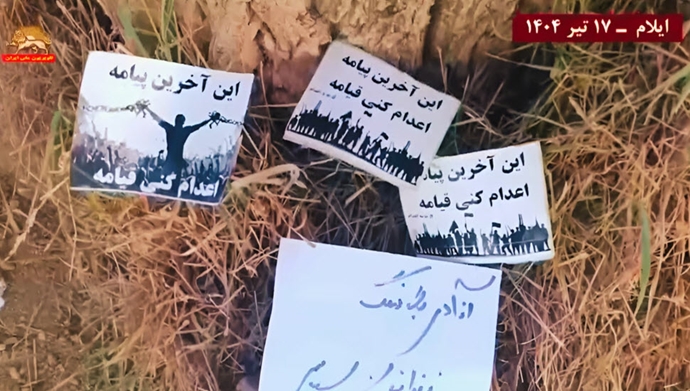 ایلام – ۱۷ تیر ۱۴۰۴
این آخرین پیامه
اعدام کنی قیامه
این آخرین پیامه
اعدام کنی قیامه
این آخرین پیامه
اعدام کنی قیامه
آزادی